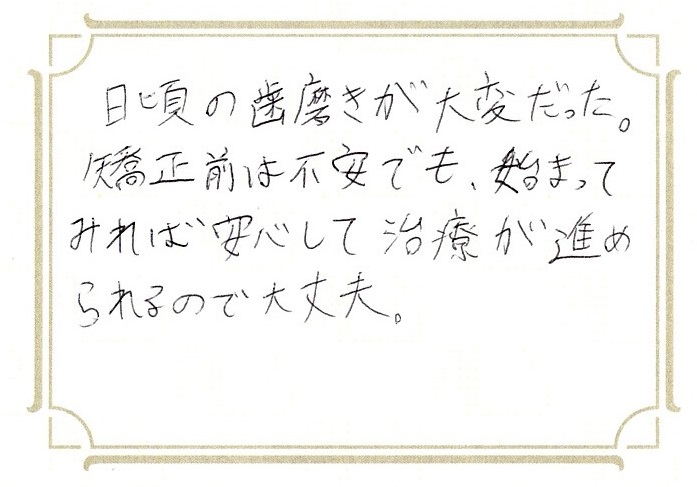 日頃の歯磨きが大変だった。
矯正前は不安でも、始まって
みれば安心して治療が進め
られるので大丈夫。